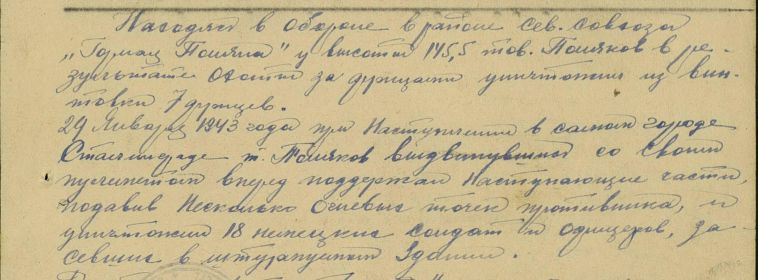 Находясь в обороне в районе сев. совхоза
"Горная Поляна" у высоты 145,5 тов. Поляков в ре-
зультате охоты за фрицами уничтожил из вин-
товки 7 фрицев.
29 Января 1943 года при наступлении в самом городе
Сталинграде т. Поляков выдвинувшись со своим
пулеметом вперед поддержал наступающие части,
подавив несколько огневых точек противника, и
уничтожил 18 немецких солдат и офицеров, за-
севших в штурмуемом здании.